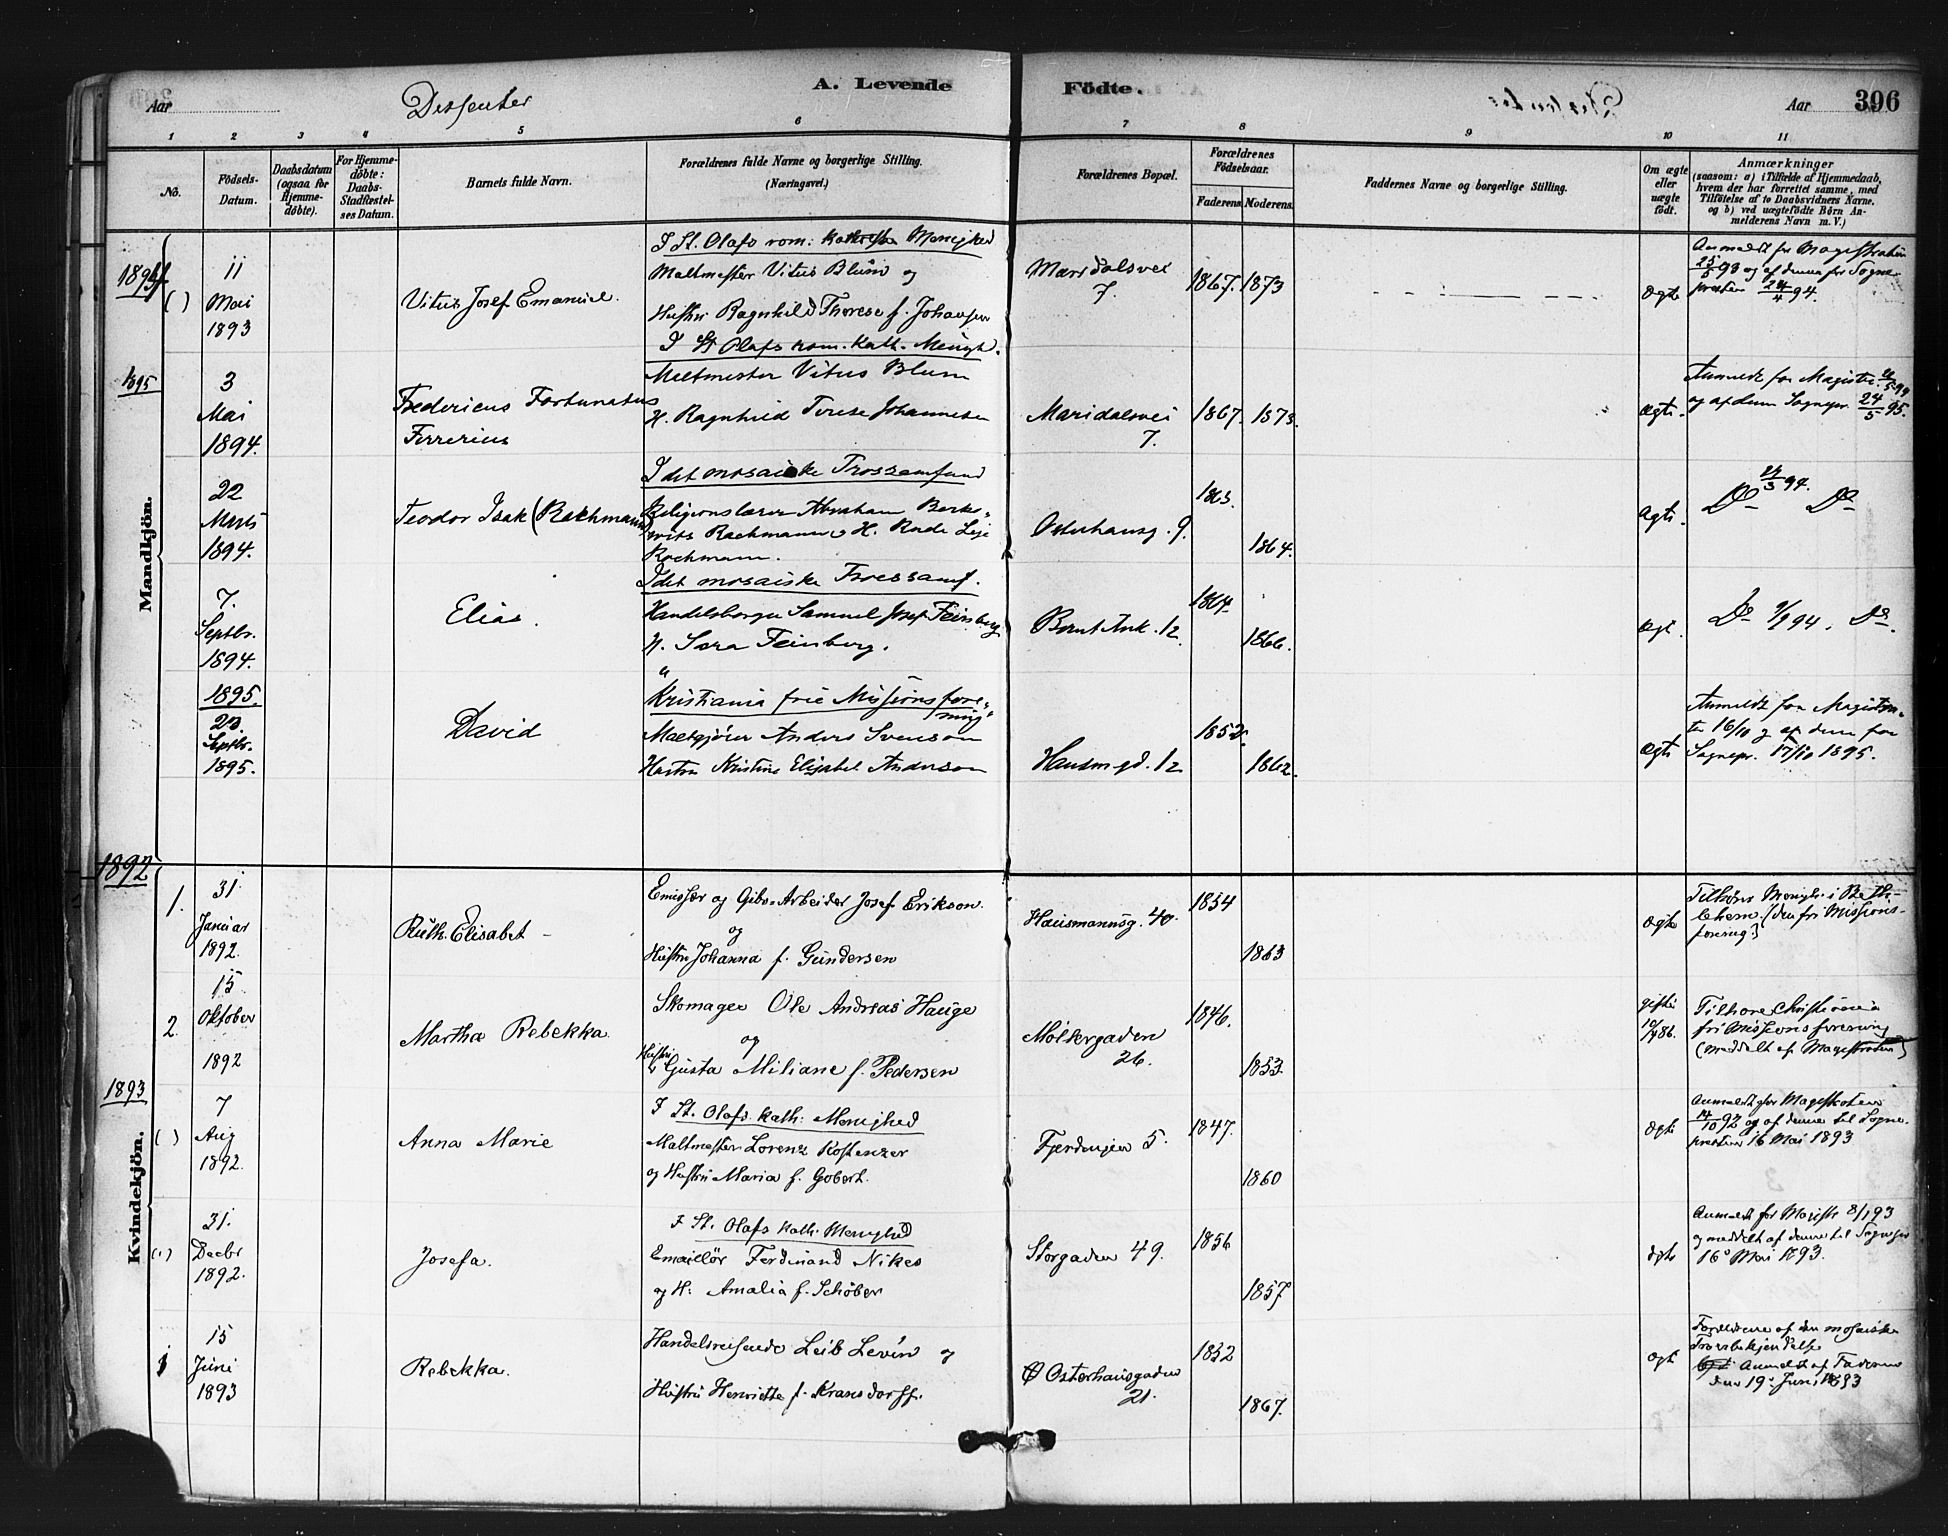 Aar
Dissenter
A. Levende
Födte.
Aar
396
1 2 3 4 5 6 7 8 9 10 11
No.
Födsels-Datum.
Daabsdatum (ogsaa for Hjemme-döbte).
For Hjemme-döbte: Daabs-Stadfæstel-ses Datum.
Barnets fulde Navn.
Forældrenes fulde Navne og borgerlige Stilling.
(Næringsvei.)
Forældrenes Bopæl.
Forældrenes Födselsaar.
Faderens.
Moderens.
Faddernes Navne og borgerlige Stilling.
Om ægte eller uægte födt.
Anmærkninger
(saasom: a) i Tilfælde af Hjemmedaab,
hvem der har forrettet samme, med
Tilföielse af to Daabsvidners Navne.
og b) ved uægtefödte Börn An-
melderens Navn m. V.)
Mandkjön.
11 Mai 1893
Vitus Josef Emanuel.
I St. Olafs rom: katholske Menighed
Maltmester Vitus Blum og
Hustru Ragnhild Therese f. Johansen
Maridalsvei 7.
1867. 1873
ægte
Anmeldt for Magistraten
og af denne for Sogne-
presten 24/4 94.
1895
3 Mai 1894.
Fredericus Fortunatus
Ferrerius
I St Olafs rom. kath. Menigh.
Maltmester Vitus Blum
H. Ragnhild Terese Johannesen
Maridalsvei 7.
1867. 1873.
ægte.
Anmeldt for Magistr.
og af dem Sognepr. 24/5 95.
22 Marts 1894.
Teodor Isak (Rachmann)
I det mosaiske Trossamfund
Religionslærer Abraham Berko-
wits Rachmann H. Rode Leje
Rochmann.
Osterhausg. 9.
1863. 1864.
ægte.
Do Do
7. Septbr. 1894.
Elias.
I det mosaiske Troessamf.
Handelsborger Samuel Josef Feinberg
H. Sara Feinberg.
Bernt Ank. 12
1864. 1866.
ægt.
Do 94. Do.
1895.
23. Septbr. 1895.
David
Kristiania frie Missionsfore-
ning
Maelgjører Anders Svenson
Hustru Kristine Elisabet Anderson
Hausm gd. 12
1852. 1862.
ægte
Anmeldt for Magistra-
ten 16/10 og af dem for
Sognepr. 17/10 1895.
1892
Kvindekjön.
1. 31. Januar 1892.
Ruth Elisabet
Emissær og Gibs-Arbeider Josef Erikson.
og
Hustru Johanna f. Gundersen
Hausmannsg. 40.
1854 1863
ægte
Tilhører Menigh. i Beth-
lehem. (den fri Missions-
forening.)
2. 15 Oktober 1892
Martha Rebekka.
Skomager Ole Andreas Hauge
og
Hustru Gusta Miliane f. Pedersen
Möllergaden 26.
1846. 1853.
gifte
Tilhører Christiania
fri Missionsforening
(meddelt af Magistraten)
1893
7 Aug 1892.
Anna Marie
I St. Olafs kath: Menighed
Maltmester Lorenz Kostenzer
og Hustru Maria f. Gobert.
Fjerdingen 5.
1847. 1860
ægte
Anmeldt for Magistraten
14/10 92 og af denne til Sogne-
presten 16 Mai 1893
31. Decbr 1892.
Josefa.
I St. Olafs kath. Menighed
Emaillör Ferdinand Nikes
og H: Amalia f. Schöber
Storgaden 49.
1856 1857
ægte
Anmeldt for Magistr 8/1 93
og meddelt af denne til Sognepr
16 Mai 1893.
1 15 Juni 1893
Rebekka.
Handelsreisende Leib Levin og
Hustru Henriette f. Kransdorff.
Osterhausgaden 21.
1852 1867.
ægte
Forældrene af den mosaiske
Troesbekjendelse
Anmeldt af Faderen
den 19 Juni 1893